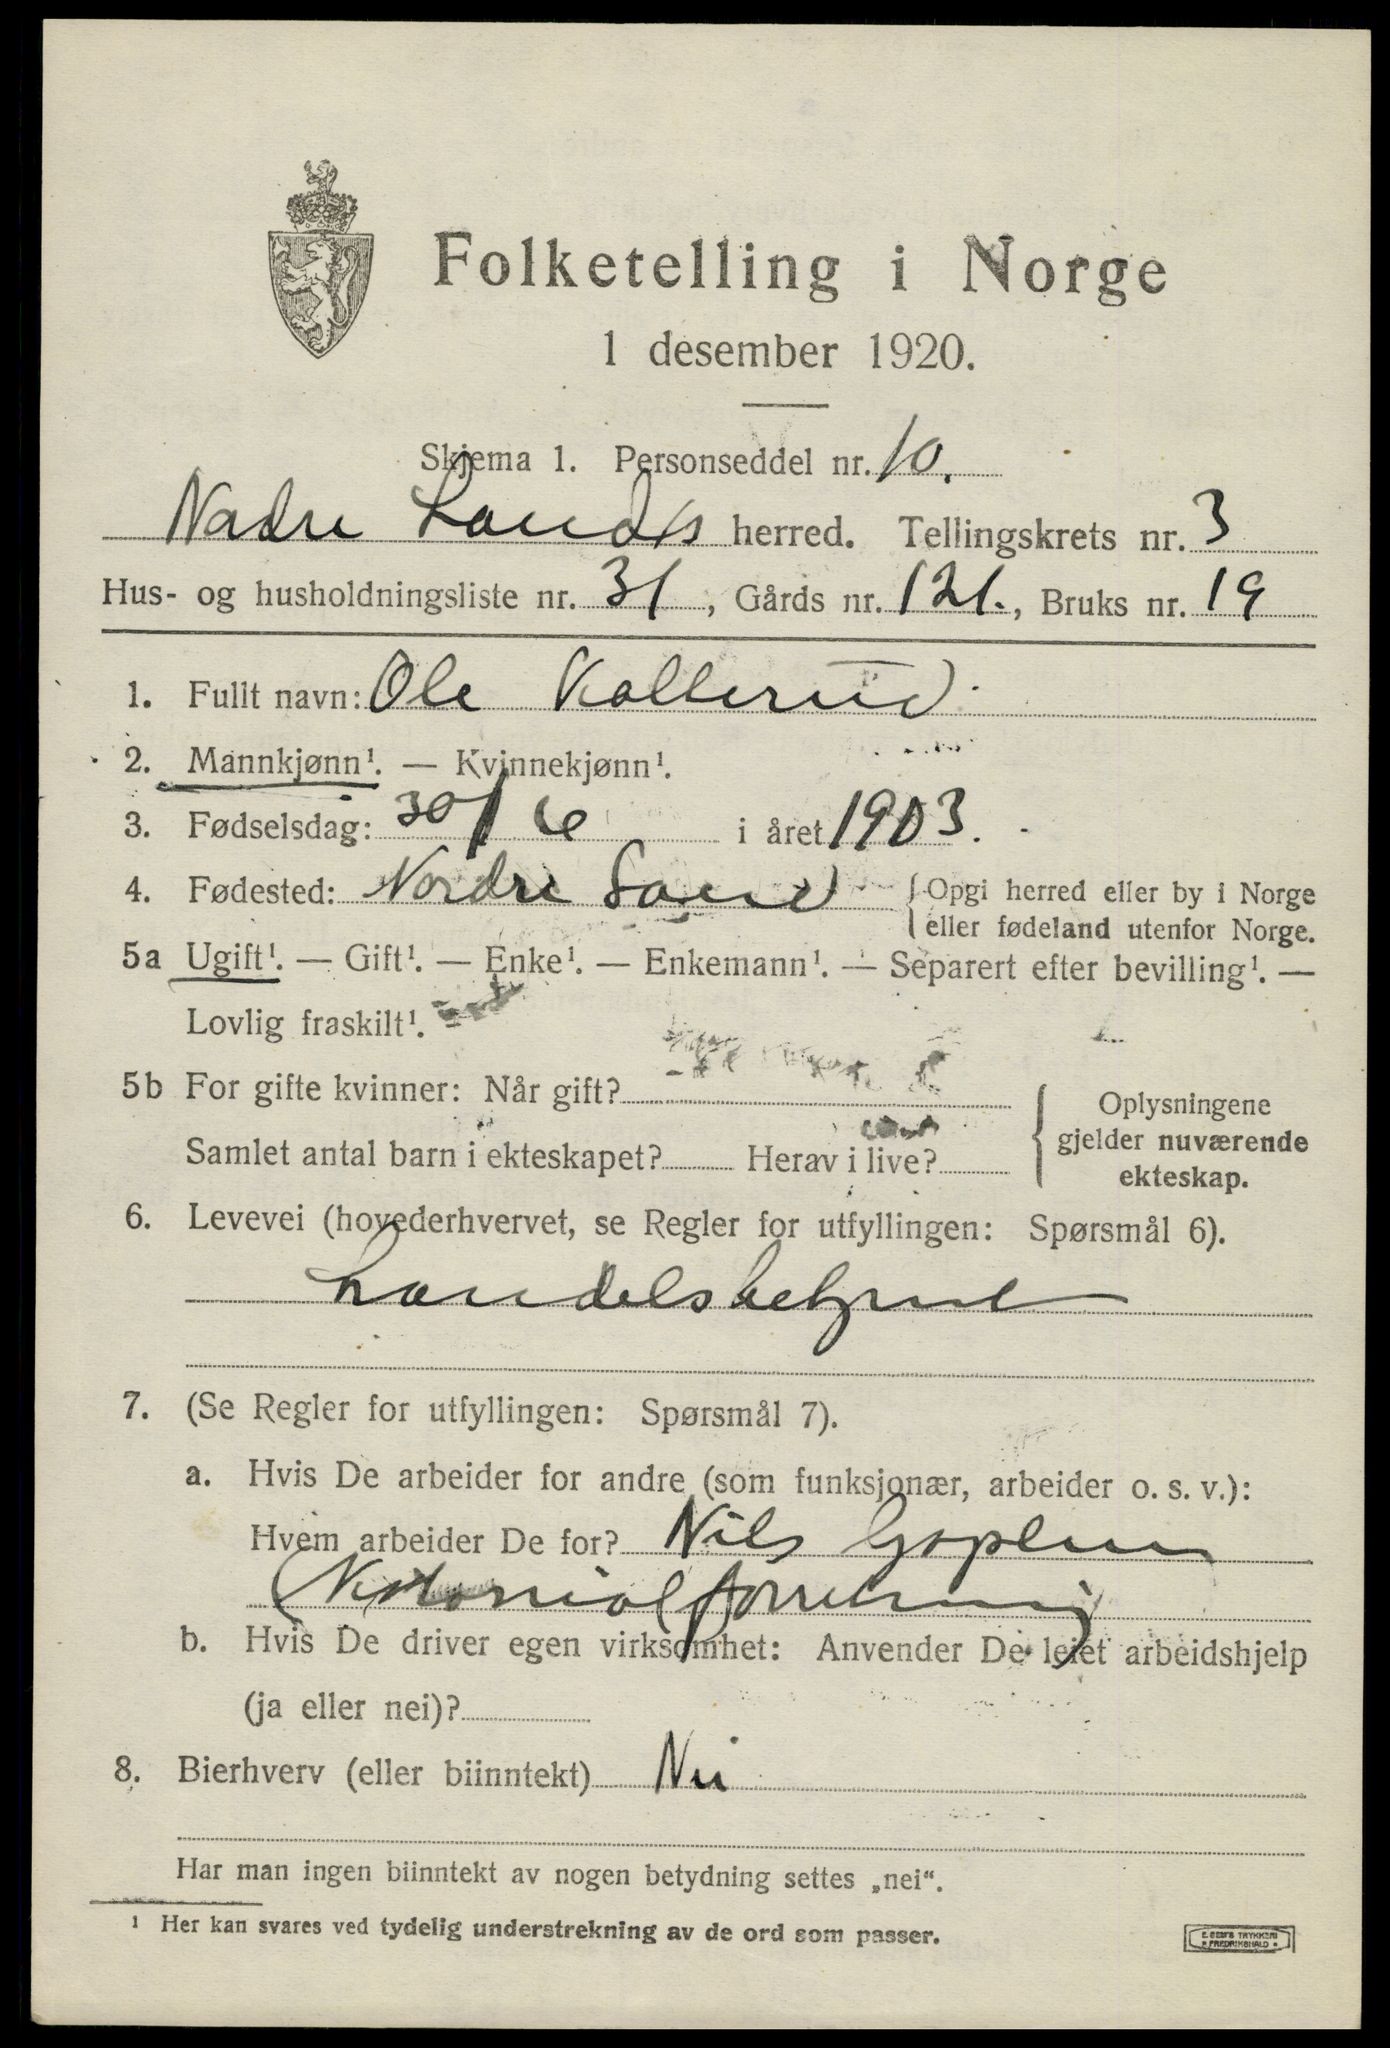 Folketelling i Norge
1 desember 1920.
Skjema 1. Personseddel nr. 10.
Nordre Lands herred. Tellingskrets nr. 3
Hus- og husholdningsliste nr. 31, Gårds nr. 121., Bruks nr. 19
1. Fullt navn: Ole Kollerud
2. Mannkjønn¹. — Kvinnekjønn¹.
3. Fødselsdag: 30/6 i året 1903.
4. Fødested: Nordre Land {Opgi herred eller by i Norge
eller fødeland utenfor Norge.
5a Ugift¹. — Gift¹. — Enke¹. — Enkemann¹. — Separert efter bevilling¹. —
Lovlig fraskilt¹.
5b For gifte kvinner: Når gift?
Samlet antal barn i ekteskapet? Herav i live?
{Oplysningene
gjelder nuværende
ekteskap.
6. Levevei (hovederhvervet, se Regler for utfyllingen: Spørsmål 6).
Handelsbetjent
7. (Se Regler for utfyllingen: Spørsmål 7).
a. Hvis De arbeider for andre (som funksjonær, arbeider o. s. v.):
Hvem arbeider De for? Nils Goplen
(Kolonialforretning)
b. Hvis De driver egen virksomhet: Anvender De leiet arbeidshjelp
(ja eller nei)?
8. Bierhverv (eller biinntekt) Nei
Har man ingen biinntekt av nogen betydning settes „nei“.
¹ Her kan svares ved tydelig understrekning av de ord som passer.
E. SEM'S TRYKKERI
FREDRIKSHALD